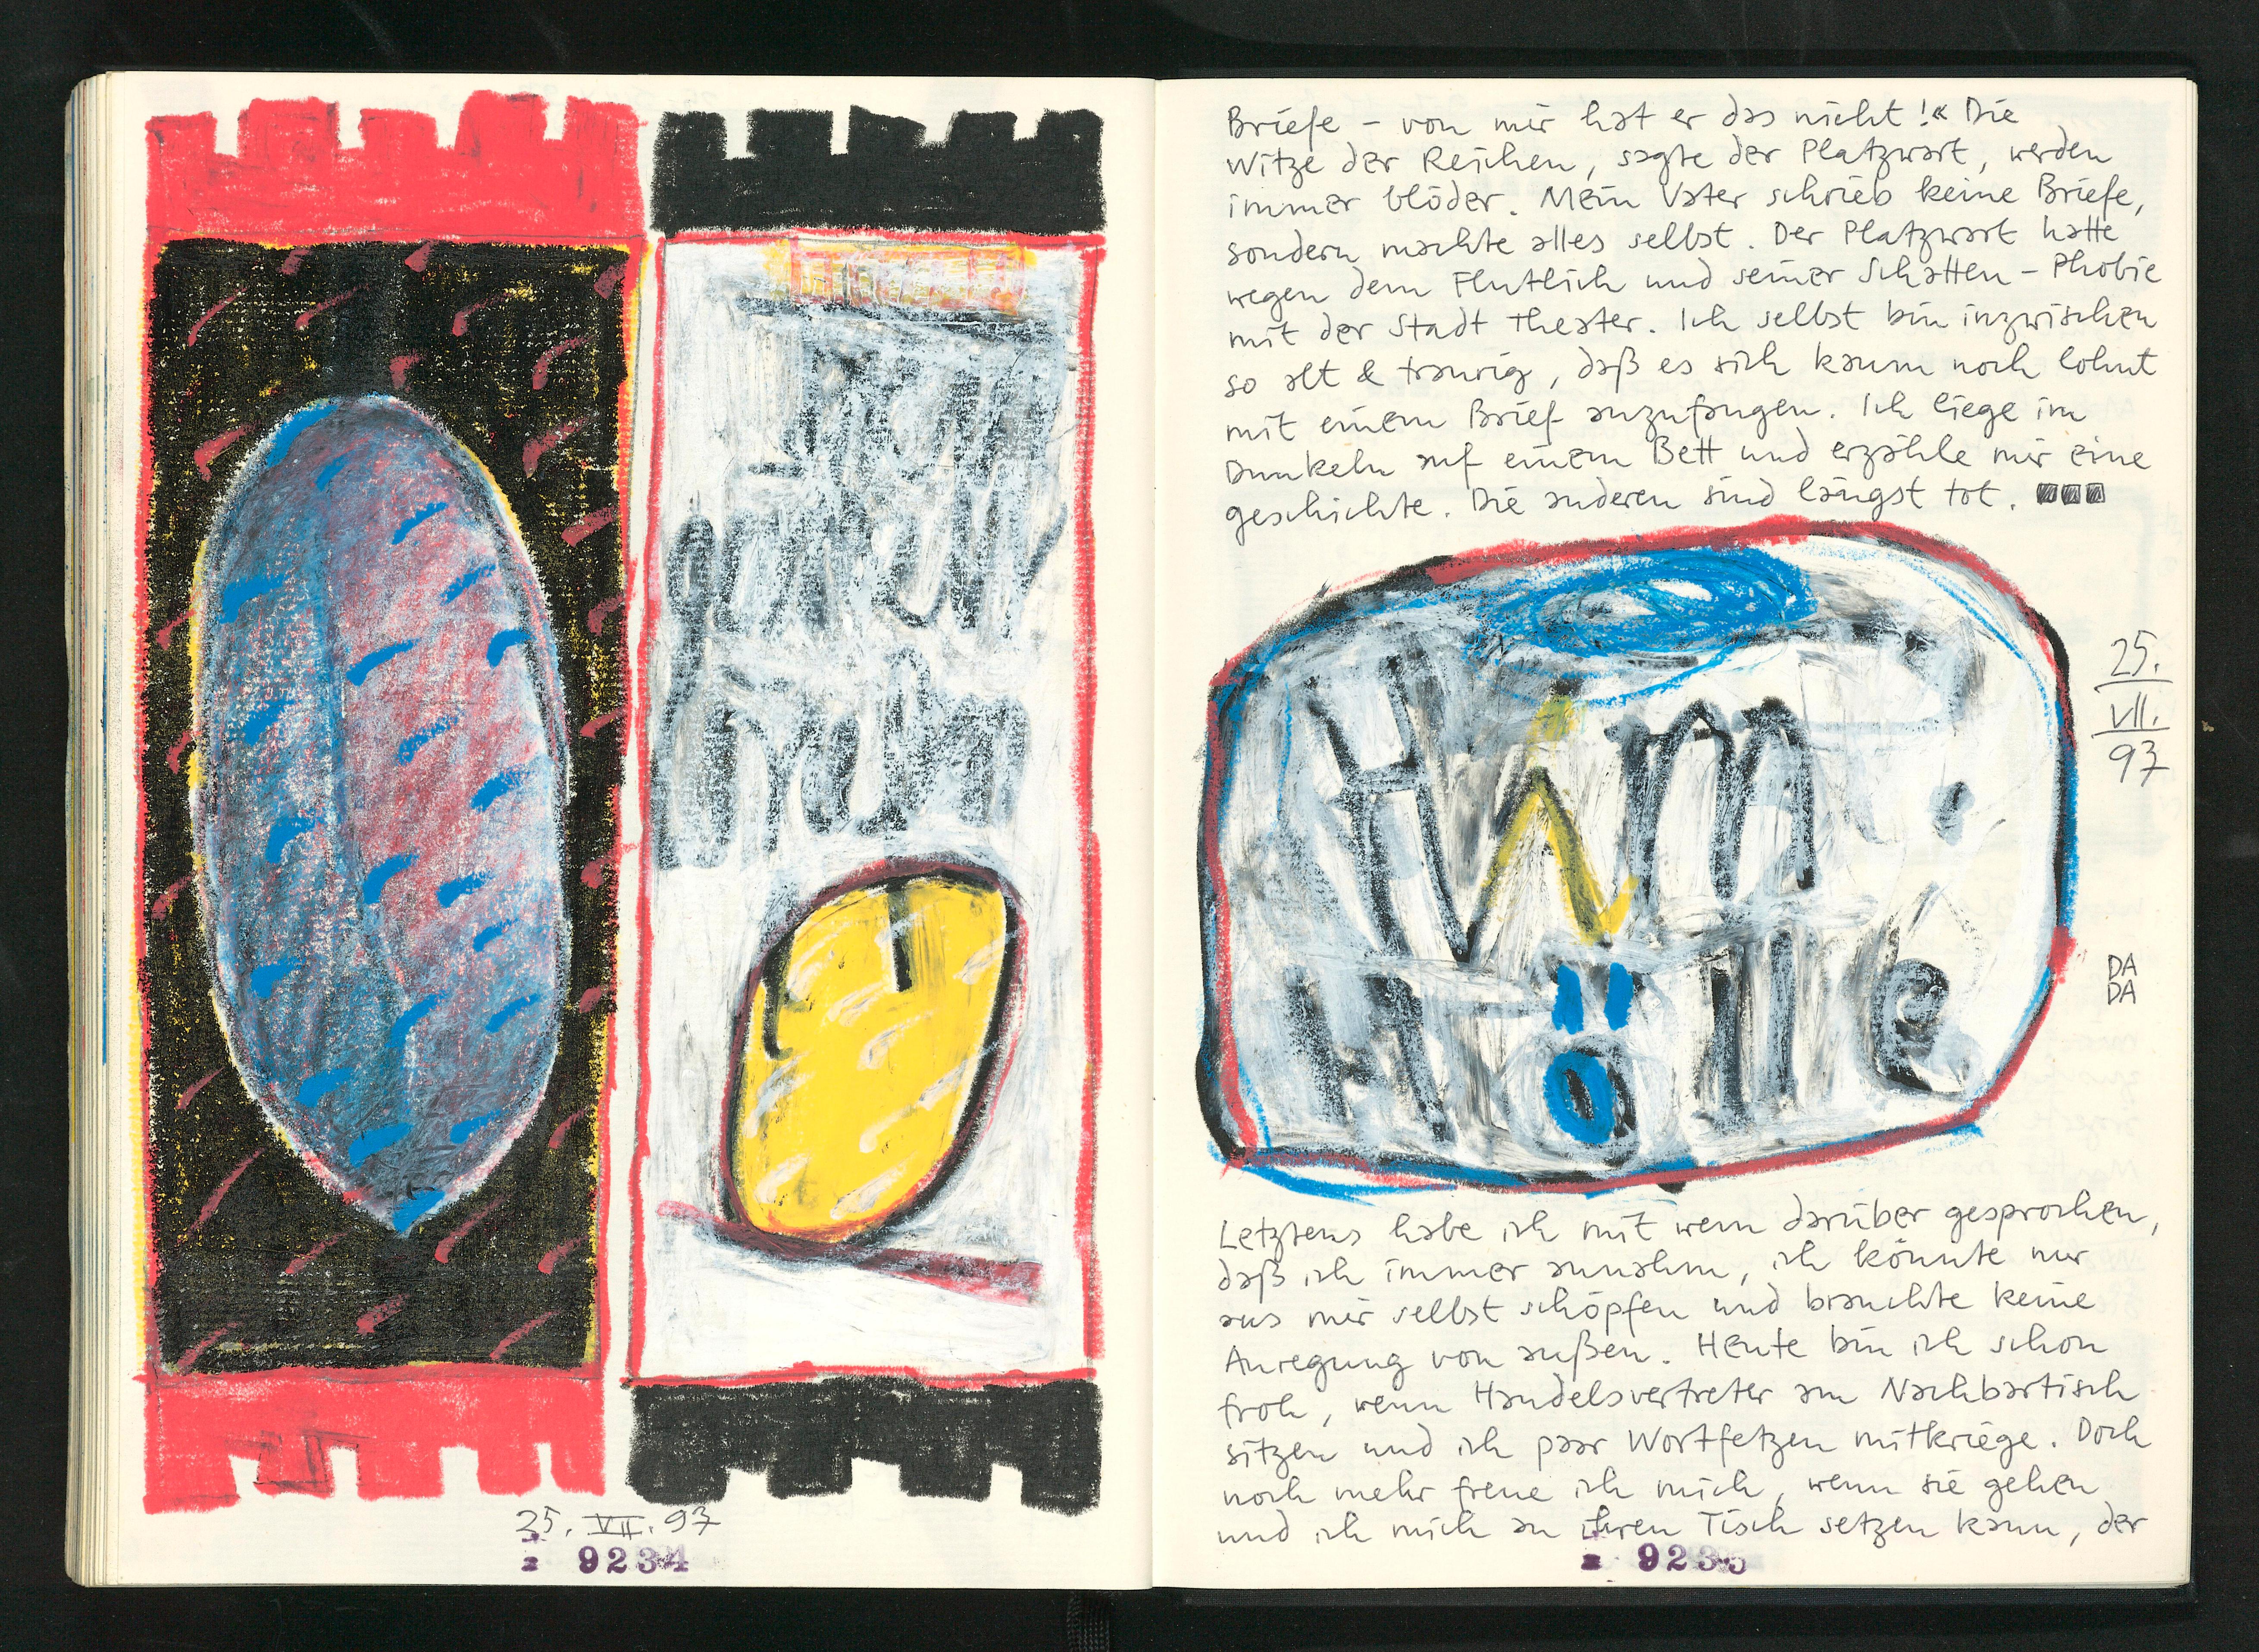 25. VII. 97
9234
Briefe – von mir hat er das nicht!« Die
Witze der Reichen, sagte der Platzwart, werden
immer blöder. Mein Vater schrieb keine Briefe,
sondern machte alles selbst. Der Platzwart hatte
wegen dem Flutlich und seiner Schatten-Phobie
mit der Stadt Theater. Ich selbst bin inzwischen
so alt & traurig, daß es sich kaum noch lohnt
mit einem Brief anzufangen. Ich liege im
Dunkeln auf einem Bett und erzähle mir eine
geschichte. Die anderen sind längst tot.
Hölle
25.
VII.
97
DA
DA
Letztens habe ich mit wem darüber gesprochen,
daß ich immer annahm, ich könnte nur
aus mir selbst schöpfen und brauchte keine
Anregung von außen. Heute bin ich schon
froh, wenn Handelsvertreter am Nachbartisch
sitzen und ich paar Wortfetzen mitkriege. Doch
noch mehr freue ich mich, wenn sie gehen
und ich mich an ihren Tisch setzen kann, der
9235